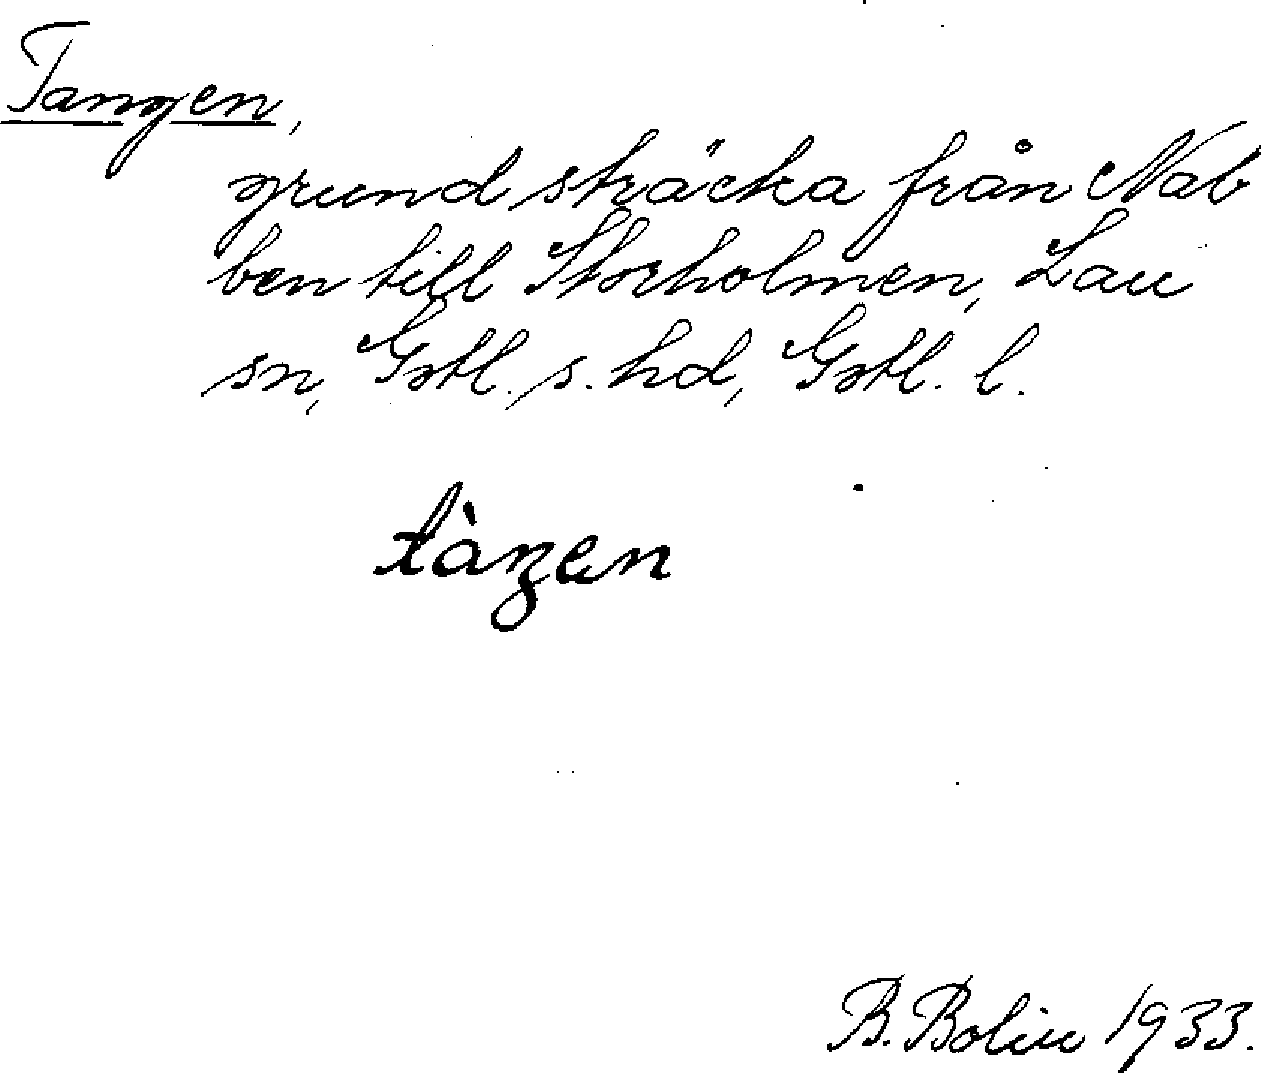 Tangen,
grundsträcka från Nab
ben till Storholmen, Lau
sn, Gotl. s. hd, Gotl. l.
tàŋen
B. Bolin 1933.